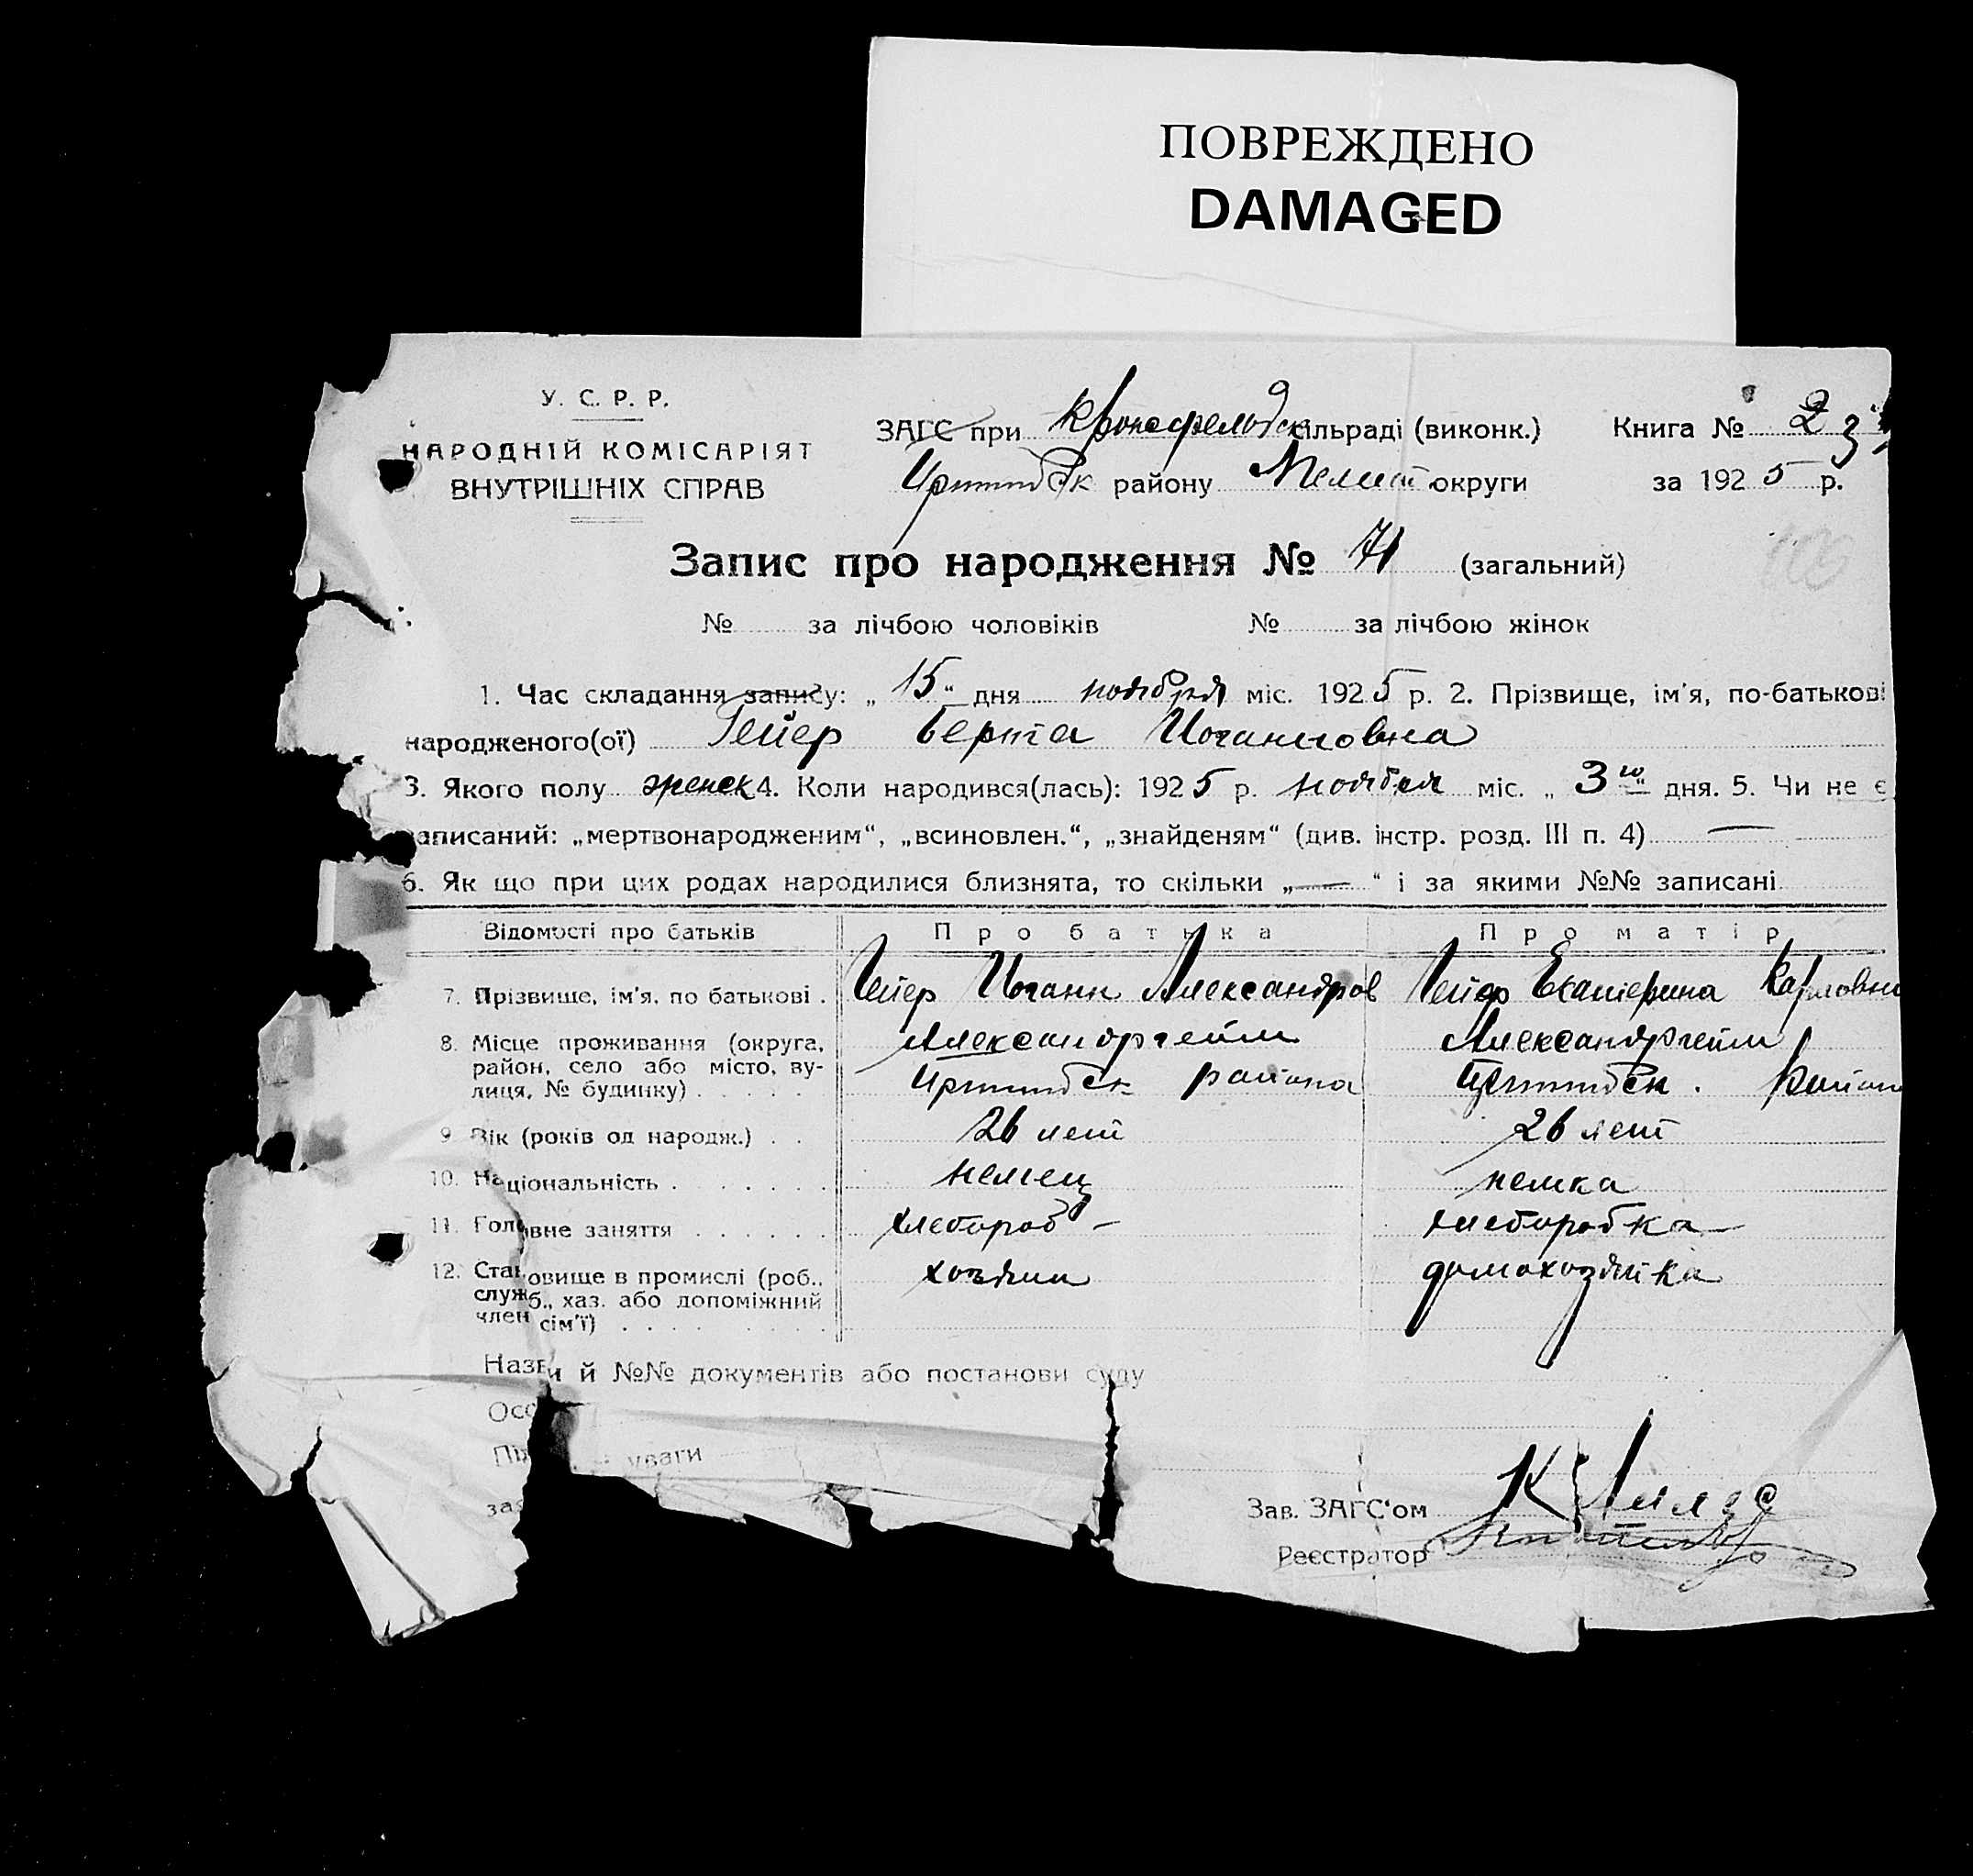 ПОВРЕЖДЕНО
DAMAGED
У. С. Р. Р.
НАРОДНІЙ КОМІСАРІЯТ
ВНУТРІШНІХ СПРАВ
ЗАГС при Кронсфельдск сільраді (виконк.)
району Мелит округи
Книга № 2
за 1925 р.
Запис про народження № 71 (загальний)
№ за лічбою чоловіків № за лічбою жінок
1. Час складання запису: „15“ дня ноября міс. 1925 р. 2. Прізвище, ім'я, по-батькові
народженого(ої) Гейер Берта Иоганновна
3. Якого полу женск 4. Коли народився(лась): 1925 р. ноября міс. „3го“ дня. 5. Чи не є
записаний: „мертвонародженим“, „всиновлен.“, „знайденям“ (див. інстр. розд. III п. 4) —
6. Як що при цих родах народилися близнята, то скільки „—“ і за якими №№ записані
Відомості про батьків Про батька Про матір
7. Прізвище, ім'я, по батькові . Гейер Иоганн Александров Гейер Екатерина Карловна
8. Місце проживання (округа, Александргейм Александргейм
район, село або місто, ву-
лиця, № будинку) . . . . . района район
9. Вік (років од народж.) . . 26 лет 26 лет
10. Національність . . . . . . немец немка
11. Головне заняття . . . . . . хлебороб – хлеборобка –
12. Становище в промислі (роб., хозяин домохозяйка
служб., хаз. або допоміжний
член сім'ї) . . . . . . .
Назви й №№ документів або постанови суду
Осо
Пі уваги
зая
Зав. ЗАГС'ом
Реєстратор